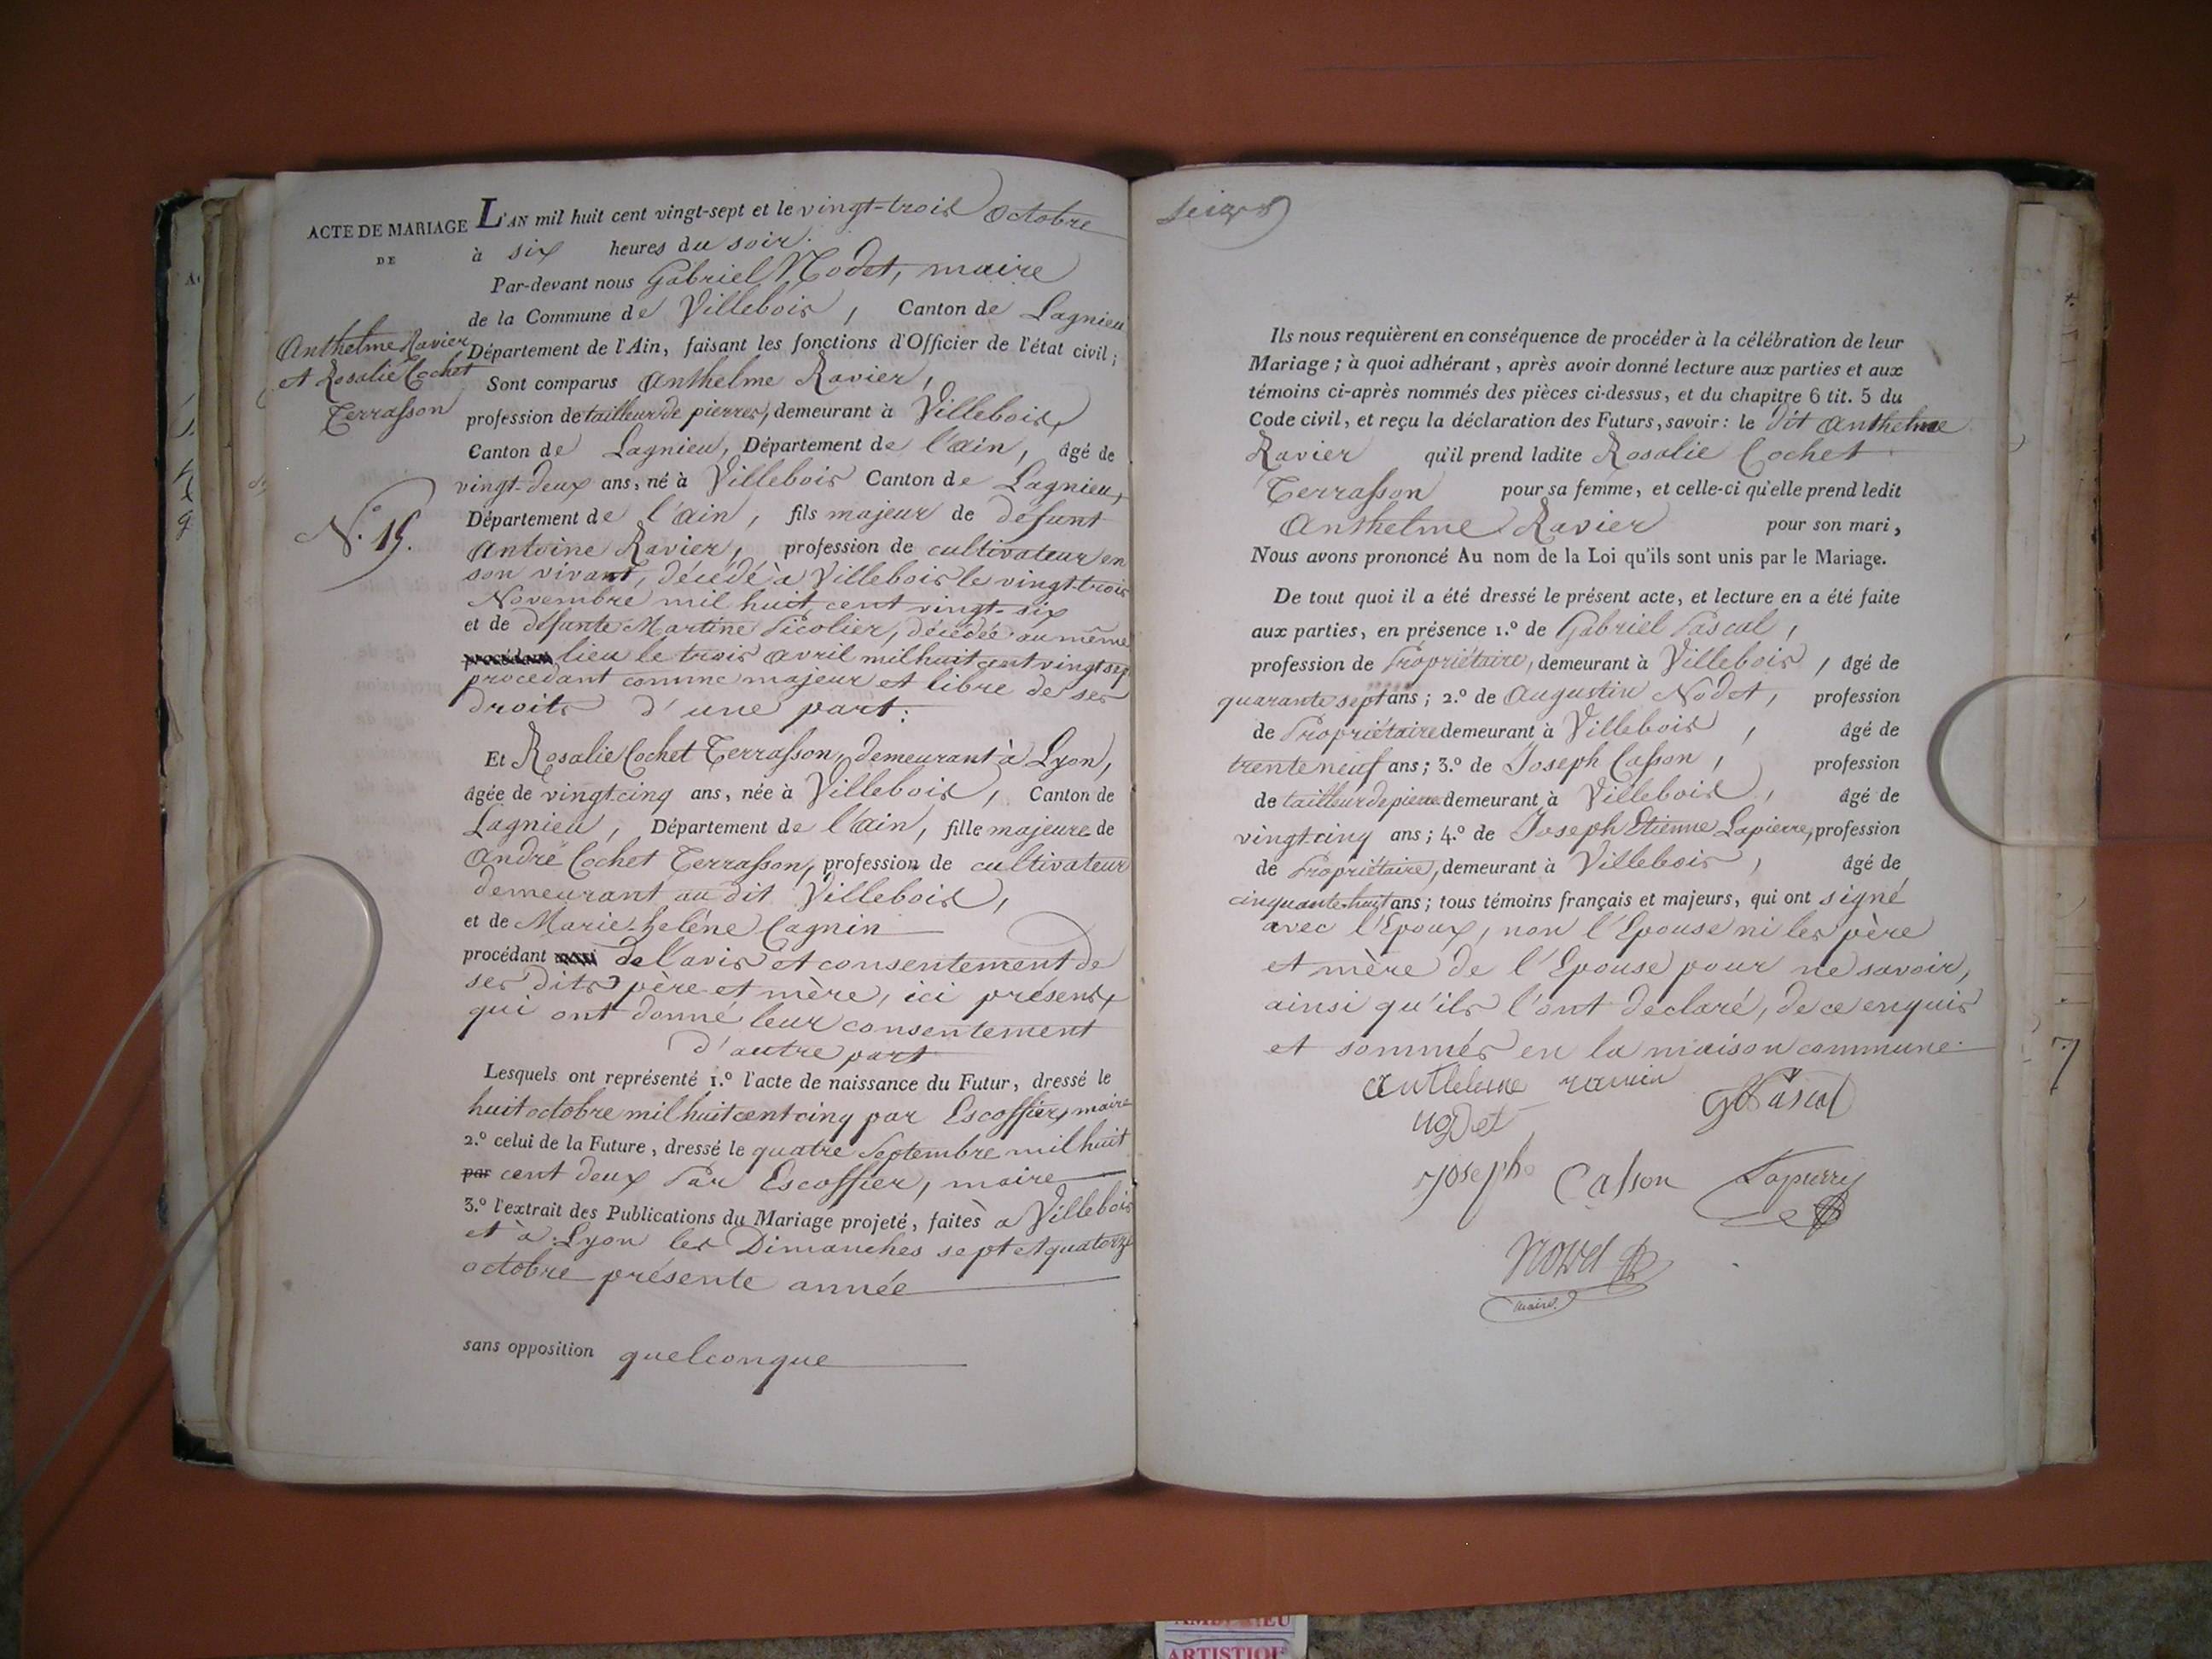 ACTE DE MARIAGE
DE
Anthelme Ravier
et Rosalie Cochet
Terrasson
N.° 15.
L'AN mil huit cent vingt-sept et le vingt-trois Octobre
à six heures du soir.
Par-devant nous Gabriel Nodet, maire
de la Commune de Villebois, Canton de Lagnieu
Département de l'Ain, faisant les fonctions d'Officier de l'état civil;
Sont comparus Anthelme Ravier,
profession de tailleur de pierres, demeurant à Villebois,
Canton de Lagnieu, Département de l'ain, âgé de
vingt-deux ans, né à Villebois Canton de Lagnieu,
Département de l'ain, fils majeur de defunt
Antoine Ravier, profession de cultivateur en
son vivant, décédé à Villebois le vingt-trois
Novembre mil huit cent vingt-six
et de défunte Martine Picolier, décédée au même
procédant lieu le trois avril mil huit cent vingt sept
procédant comme majeur et libre de ses
droits d'une part:
Et Rosalie Cochet Terrasson, demeurant à Lyon,
âgée de vingt-cinq ans, née à Villebois, Canton de
Lagnieu, Département de l'ain, fille majeure de
André Cochet Terrasson, profession de cultivateur
demeurant au dit Villebois,
et de Marie-heléne Cagnin
procédant de l'avis et consentement de
ses dits père et mère, ici présens,
qui ont donné leur consentement
d'autre part
Lesquels ont représenté 1.° l'acte de naissance du Futur, dressé le
huit octobre mil huit cent cinq par Escoffier, maire
2.° celui de la Future, dressé le quatre Septembre mil huit
par cent deux Par Escoffier, maire
3.° l'extrait des Publications du Mariage projeté, faites à Villebois
et à Lyon les Dimanches sept et quatorze
octobre présente année
sans opposition quelconque
seize
Ils nous requièrent en conséquence de procéder à la célébration de leur
Mariage; à quoi adhérant, après avoir donné lecture aux parties et aux
témoins ci-après nommés des pièces ci-dessus, et du chapitre 6 tit. 5 du
Code civil, et reçu la déclaration des Futurs, savoir: le dit Anthelme
Ravier qu'il prend ladite Rosalie Cochet
Terrasson pour sa femme, et celle-ci qu'elle prend ledit
Anthelme Ravier pour son mari,
Nous avons prononcé Au nom de la Loi qu'ils sont unis par le Mariage.
De tout quoi il a été dressé le présent acte, et lecture en a été faite
aux parties, en présence 1.° de Gabriel Pascal,
profession de Propriétaire, demeurant à Villebois, âgé de
quarante sept ans; 2.° de Augustin Nodet, profession
de Propriétaire demeurant à Villebois, âgé de
trente neuf ans; 3.° de Joseph Casson, profession
de tailleur de pierre demeurant à Villebois, âgé de
vingt-cinq ans; 4.° de Joseph Etienne Lapierre, profession
de Propriétaire, demeurant à Villebois, âgé de
cinquante-huit ans; tous témoins français et majeurs, qui ont signé
avec l'Epoux, non l'Epouse ni les père
et mère de l'Epouse pour ne savoir,
ainsi qu'ils l'ont declaré, de ce enquis
et sommés en la maison commune.
Anthelme ravier
G Pascal
nodet
Joseph Casson
Lapierre
Nodet
maire
7
ARTISTIQUE